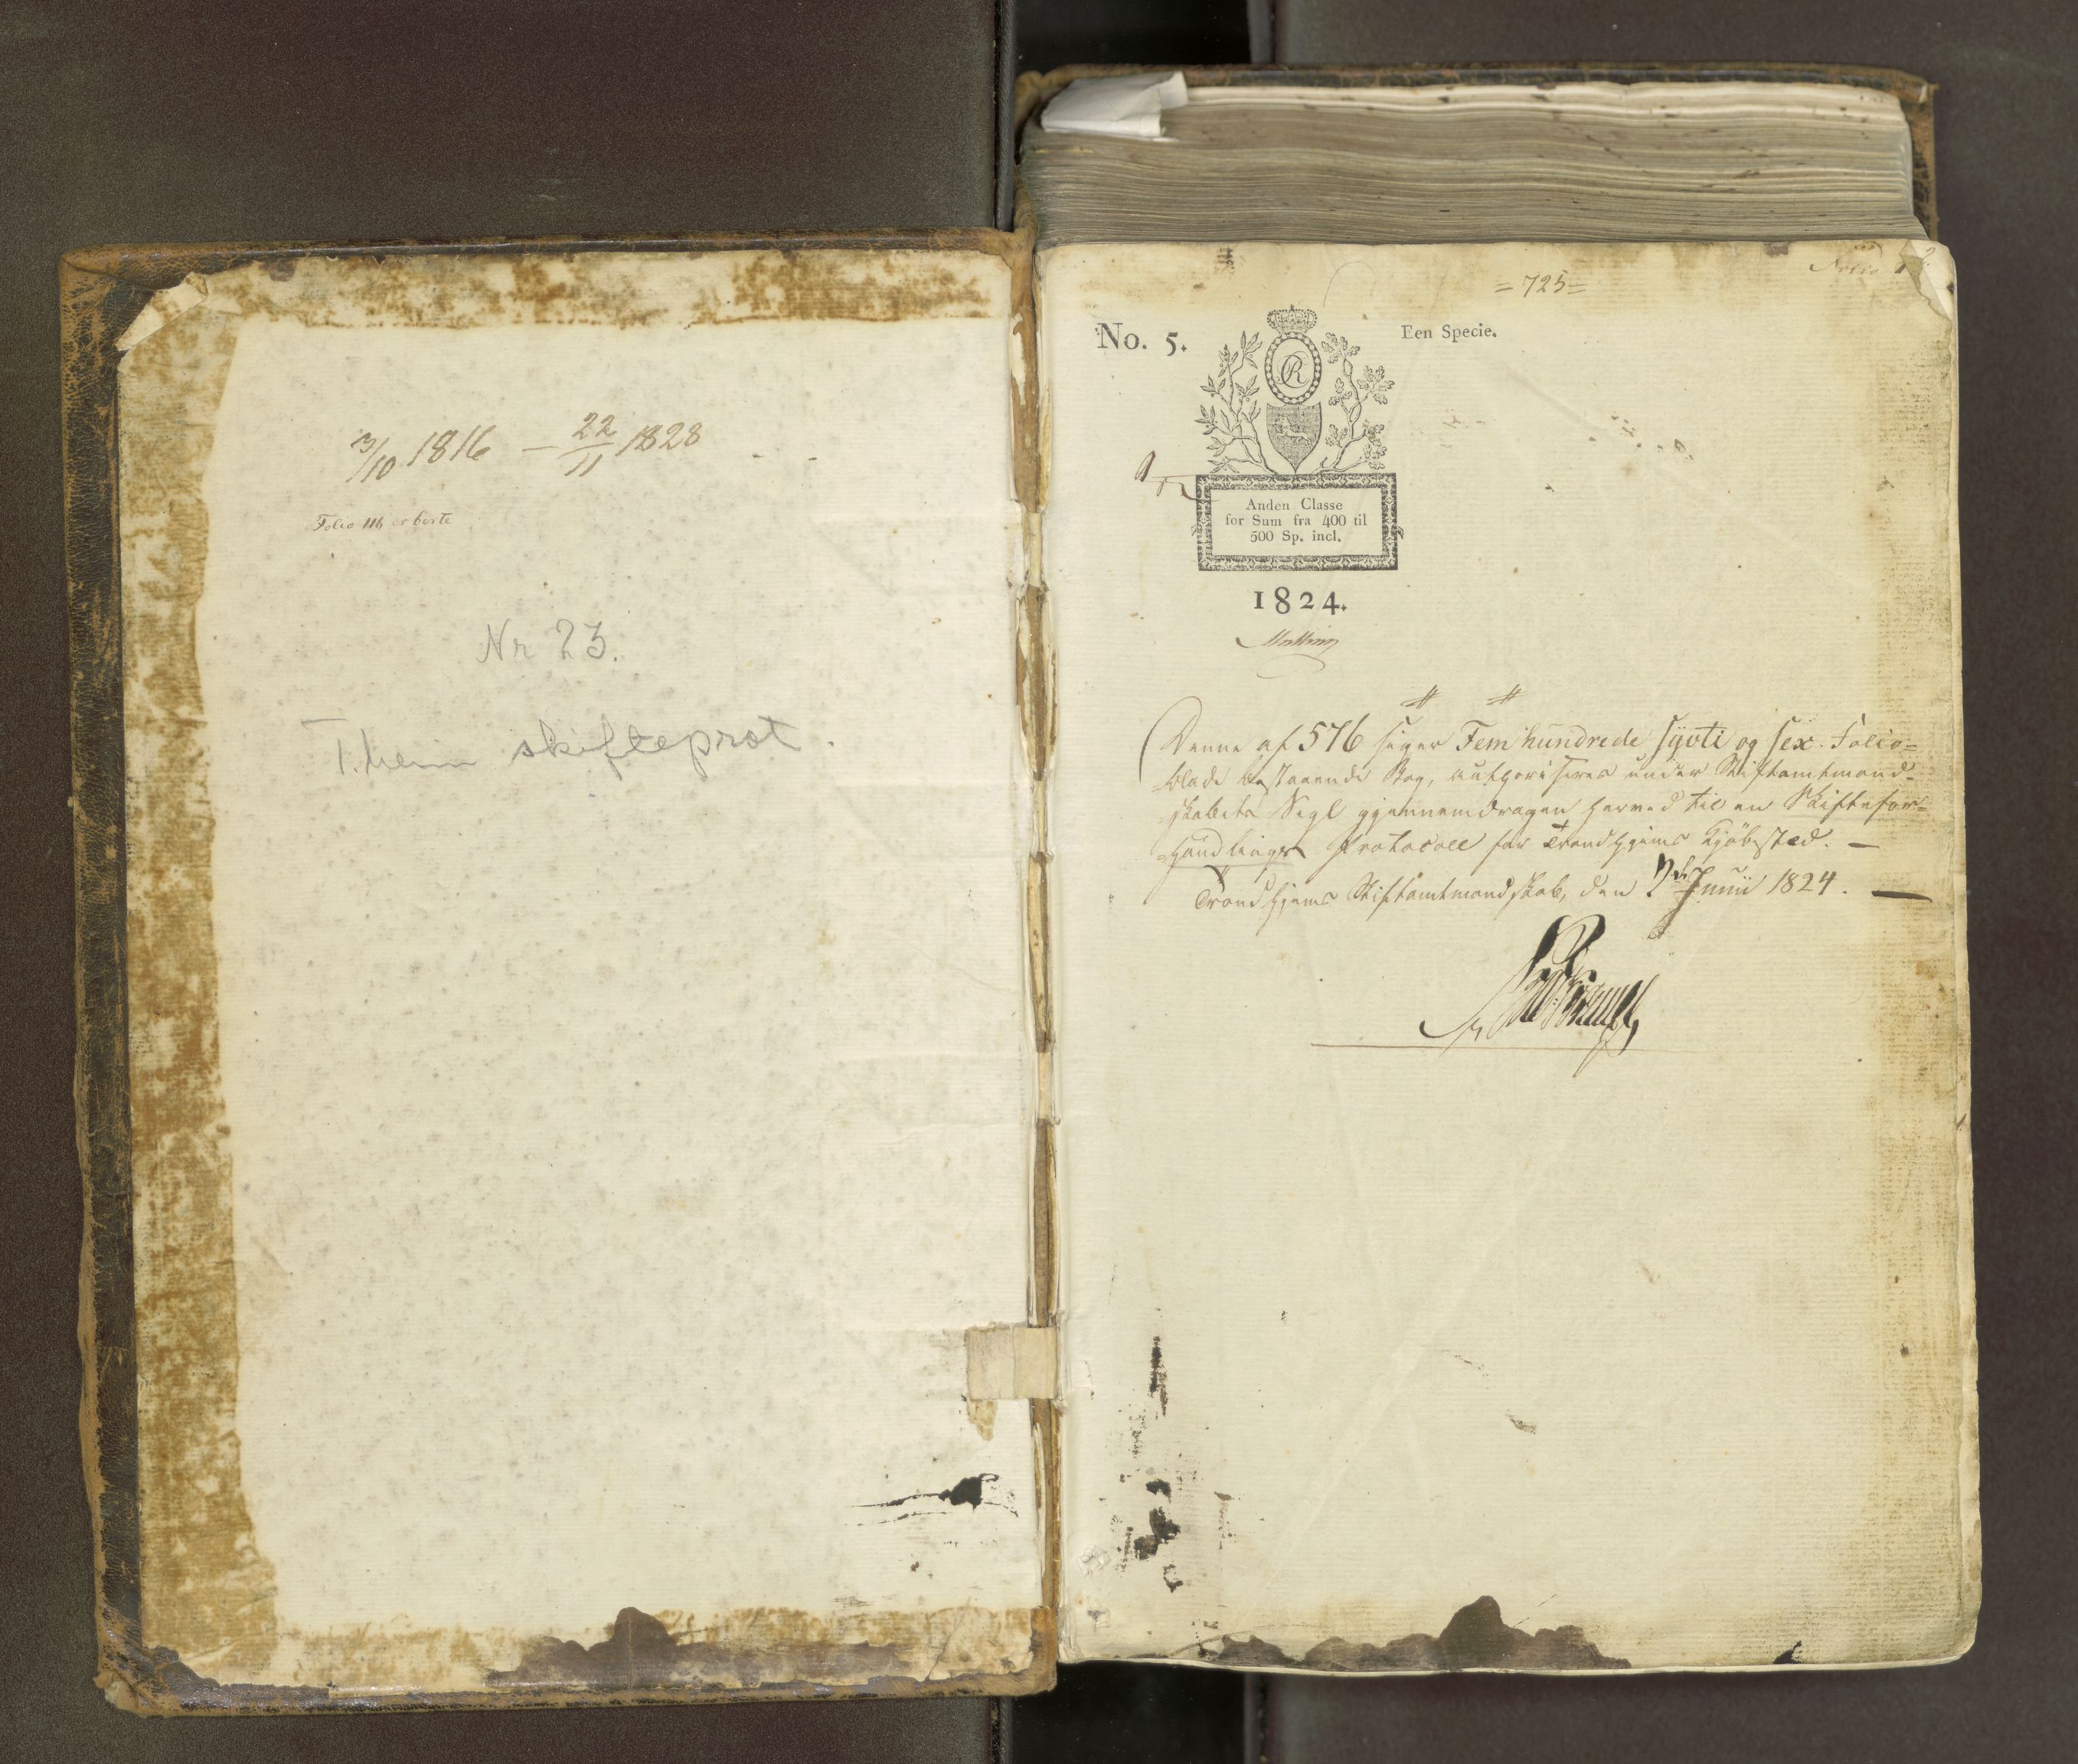 3/10 1816 – 22/11 1828
Folio 114 er borte
Nr 23.
T.heim skifteprot.
Folio 1
= 725 =
No. 5.
Een Specie.
Anden Classe
for Sum fra 400 til
500 Sp. incl.
1824.
Denne af 576 siger Fem hundrede syvti og sex Folio=
blade bestaaende Bog, authoriseres under Stiftamtmand=
skabets Segl gjennemdragen herved til en Skiftefor=
=handlings Protocoll for Trondhjems Kjöbsted. —
Trondhjems Stiftamtmandskab, den 2de Junii 1824. —